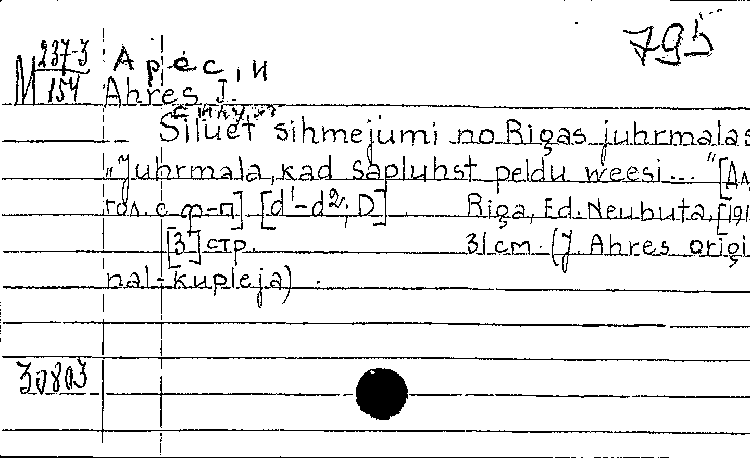 795
М 237-3 Арес, И
154 Ahres J.
силуэт
Siluet sihmejumi no Rigas juhrmalas
"Juhrmala, kad sapluhst peldu weesi..." [Дл
гол. с ф-п] [d'-d²; D] Riga, Ed. Neubuta, [191
[3] стр. 31 cm. (J. Ahres origi
nal-kupleja)
30803